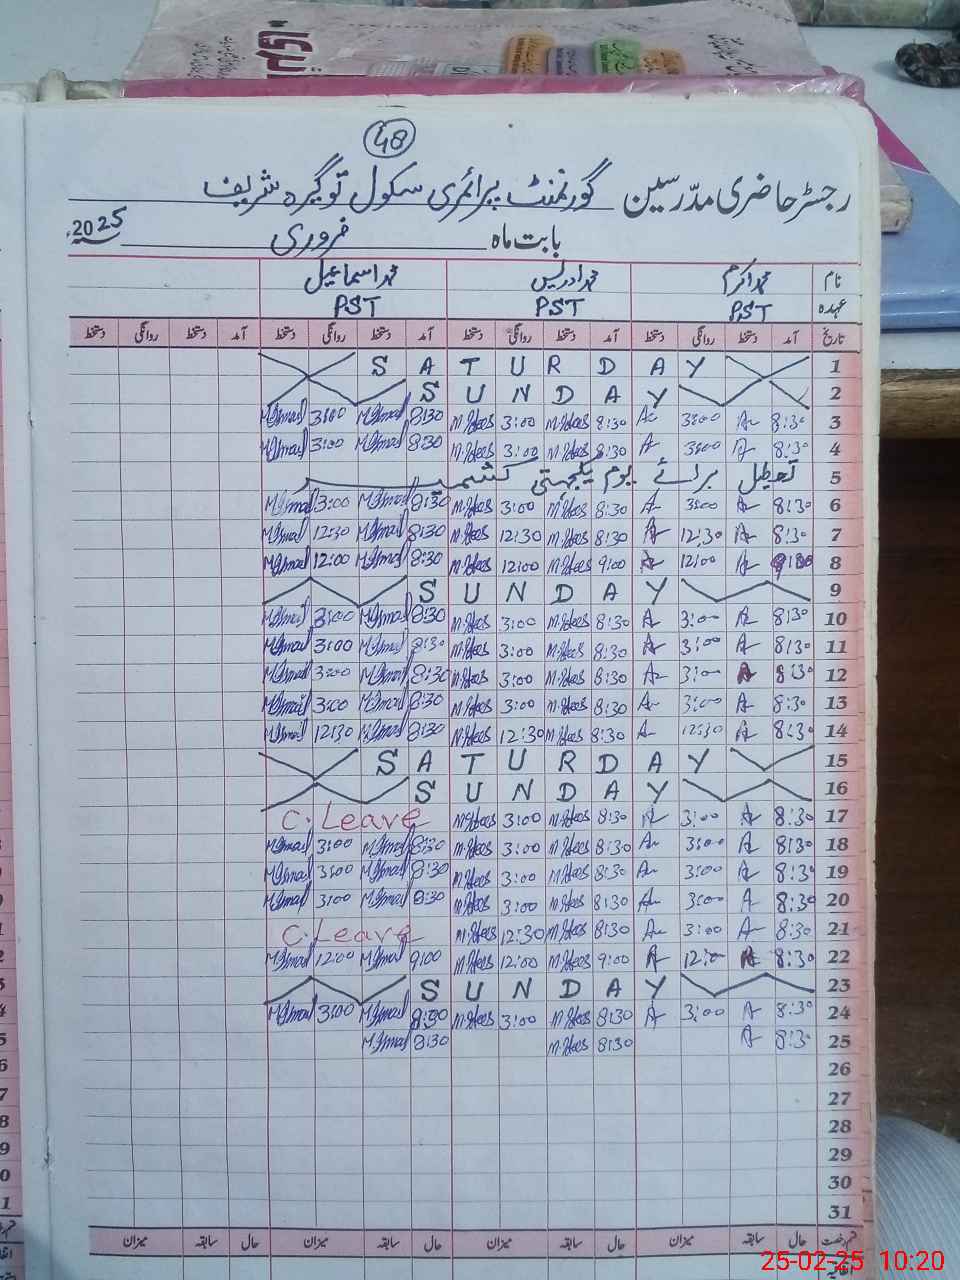 48
رجسٹر حاضری مدرسین گورنمنٹ پرائمری سکول توگیرہ شریف
بابت ماہ فروری 2025ء
نام محمد اکرم محمد ادریس محمد اسماعیل
عہدہ PST PST PST
تاریخ آمد دستخط روانگی دستخط آمد دستخط روانگی دستخط آمد دستخط روانگی دستخط آمد دستخط روانگی دستخط
1 SATURDAY
2 SUNDAY
3 8:30 A 3:00 A 8:30 M.Idrees 3:00 M.Idrees 8:30 M Ismail 3:00 M Ismail
4 8:30 A 3:00 A 8:30 M.Idrees 3:00 M.Idrees 8:30 M Ismail 3:00 M Ismail
5 تعطیل برائے یوم یکجہتی کشمیر
6 8:30 A 3:00 A 8:30 M.Idrees 3:00 M.Idrees 8:30 M Ismail 3:00 M Ismail
7 8:30 A 12:30 A 8:30 M.Idrees 12:30 M.Idrees 8:30 M Ismail 12:30 M Ismail
8 A 12:00 A 9:00 M.Idrees 12:00 M.Idrees 8:30 M Ismail 12:00 M Ismail
9 SUNDAY
10 8:30 A 3:00 A 8:30 M.Idrees 3:00 M.Idrees 8:30 M Ismail 3:00 M Ismail
11 8:30 A 3:00 A 8:30 M.Idrees 3:00 M.Idrees 8:30 M Ismail 3:00 M Ismail
12 8:30 A 3:00 A 8:30 M.Idrees 3:00 M.Idrees 8:30 M Ismail 3:00 M Ismail
13 8:30 A 3:00 A 8:30 M.Idrees 3:00 M.Idrees 8:30 M Ismail 3:00 M Ismail
14 8:30 A 12:30 A 8:30 M.Idrees 12:30 M.Idrees 8:30 M Ismail 12:30 M Ismail
15 SATURDAY
16 SUNDAY
17 8:30 A 3:00 A 8:30 M.Idrees 3:00 M.Idrees C.Leave
18 8:30 A 3:00 A 8:30 M.Idrees 3:00 M.Idrees 8:30 M Ismail 3:00 M Ismail
19 8:30 A 3:00 A 8:30 M.Idrees 3:00 M.Idrees 8:30 M Ismail 3:00 M Ismail
20 8:30 A 3:00 A 8:30 M.Idrees 3:00 M.Idrees 8:30 M Ismail 3:00 M Ismail
21 8:30 A 3:00 A 8:30 M.Idrees 12:30 M.Idrees C.Leave
22 8:30 A 12:00 A 9:00 M.Idrees 12:00 M.Idrees 9:00 M Ismail 12:00 M Ismail
23 SUNDAY
24 8:30 A 3:00 A 8:30 M.Idrees 3:00 M.Idrees 8:30 M Ismail 3:00 M Ismail
25 8:30 A 8:30 M.Idrees 8:30 M Ismail
26
27
28
29
30
31
حال سابقہ میزان حال سابقہ میزان حال سابقہ میزان حال سابقہ میزان
25-02-25 10:20